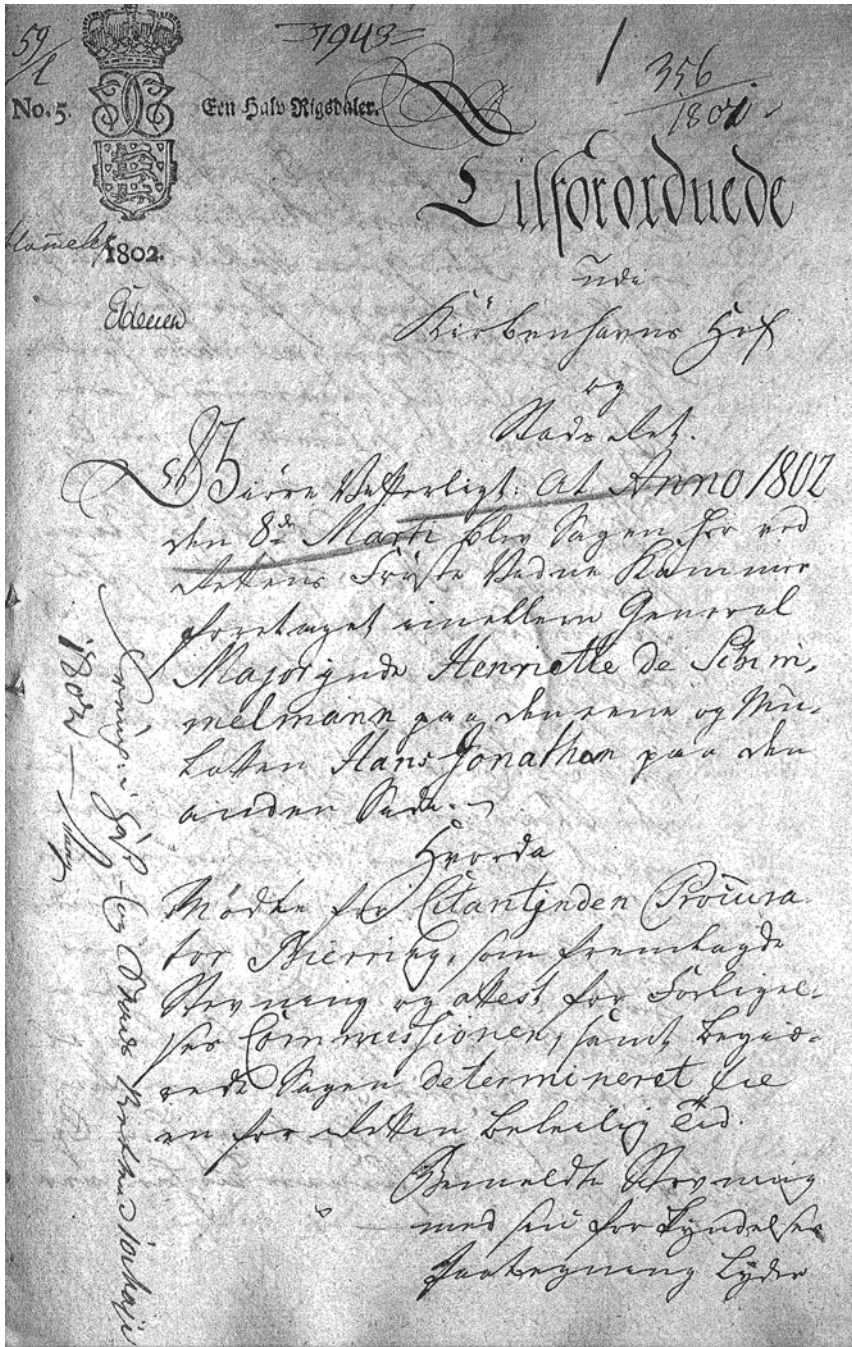 59/1
=1943=
1
356/1801
No. 5.
Een Halv Rigsdaler.
1802.
Tilforordnede
udi
Kiøbenhavns Hof
og
Stads Ret.
Giøre Vitterligt: at Anno 1802
den 8de Marti blev Sagen her ved
Rettens Første Vidne Kammer
foretaget imellem General
Majorinde Henriette de Schim,
melmann paa den eene og Mu,
latten Hans Jonathan paa den
anden Side.
Hvorda
Mødte for Citantinden Procura
tor Bierring, som fremlagde
Stevning og attest fra Forligel-
ses Commissionen, samt begiæ-
rede Sagen determineret til
en for Retten beleilig Tid.
Bemeldte Stevning
med sin forkyndelses
Paategning lyder
1802